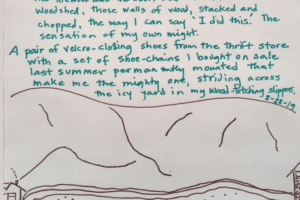 woodshed, those walls of wood, stacked and
chopped, the way I can say 'I did this.' The
sensation of my own might.
A pair of velcro-closing shoes from the thrift store
with a set of shoe-chains I bought on sale
last summer permanently mounted that
make me the mighty one, striding across
the icy yard in my wood-fetching slippers.
2-22-19